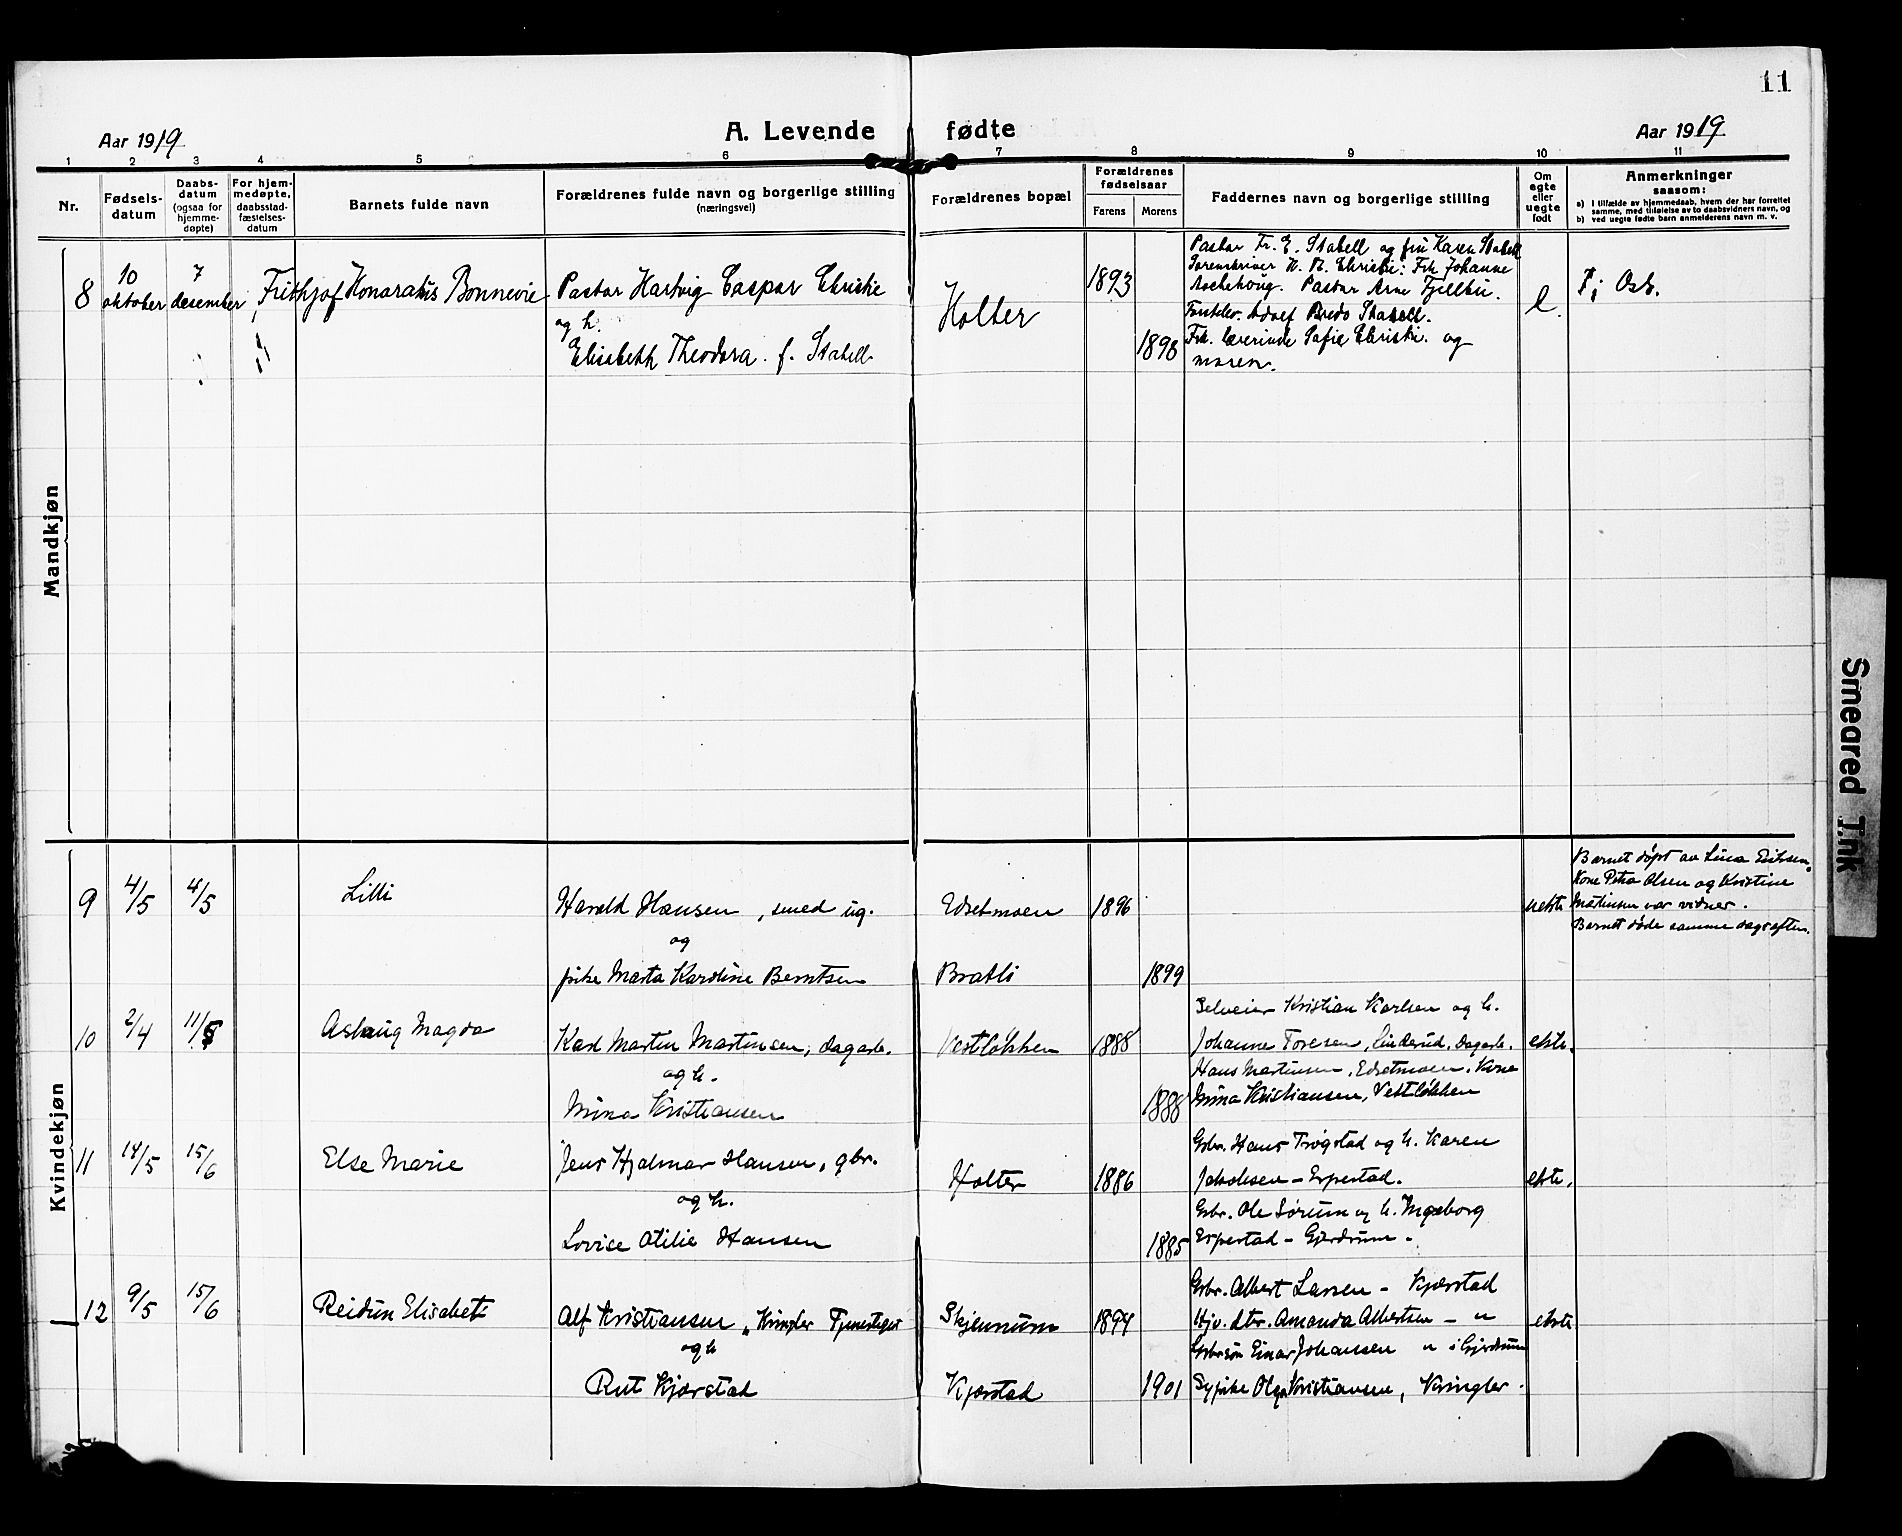 11
Aar 1919
A. Levende fødte
Aar 1919
1 2 3 4 5 6 7 8 9 10 11
Nr.
Fødsels-
datum
Daabs-
datum
(ogsaa for
hjemme-
døpte)
For hjem-
medøpte,
daabsstad-
fæstelses-
datum
Barnets fulde navn
Forældrenes fulde navn og borgerlige stilling
(næringsvei)
Forældrenes bopæl
Forældrenes
fødselsaar
Farens Morens
Faddernes navn og borgerlige stilling
Om
egte
eller
uegte
født
Anmerkninger
saasom:
a) i tilfælde av hjemmedaab, hvem der har forrettet
samme, med tilføielse av to daabsvidners navn, og
b) ved uegte fødte barn anmelderens navn m. v.
Mandkjøn
8
10
oktober
7
desember
Frithjof Honoratus Bonnevie
Pastor Hartvig Caspar Christie
og h.
Elisabeth Theodora f. Stabell
Holter
1893
1898
Pastor Fr. E. Stabell og fru Karen Stabell
Sorenskriver H. R. Christie: Frk Johanne
Pastor Arne Fjellbu.
Adolf Bredo Stabell.
Frk. Lærerinde Sofie Christie. og
moren.
e.
Kvindekjøn
9
4/5
4/5
Lilli
Harald Hansen, smed ug.
og
pike Marta Karoline Berntsen
Edsetmoen
Bratli
1896
1899
uekte
Barnet døpt av Lina Eriksen.
Kone Petra Olsen og Kristine
Martinsen var vidner.
Barnet døde samme dags aften.
10
2/4
11/5
Aslaug Magda
Karl Martin Martinsen, dagarb.
og h.
Mina Kristiansen
Vestløkken
1888
1888
Selveier Kristian Karlsen og h.
Johanne Toresen, Linderud. Dagarb.
Hans Martinsen, Edsetmoen. Kone
Mina Kristiansen, Vestløkken
ekte.
11
14/5
15/6
Else Marie
Jens Hjalmar Hansen, gbr.
og h.
Lovise Otilie Hansen
Holter
1886
1885
Gbr. Hans Trøgstad og h. Karen
Jakobsen - Erpestad.
Gbr. Ole Sørum og h. Ingeborg
Erpestad - Gjerdrum -
ekte.
12
9/5
15/6
Reidun Elisabet
Alf Kristiansen, Kringler
og h
Rut Kjærstad
Skjennum
Kjærstad
1894
1901
Gbr. Albert Larsen - Kjærstad
Hjv. dtr. Amanda Albertsen - "
Gbrsøn Einar Johansen " i Gjerdrum
Sypike Olga Kristiansen, Kringler.
ekte
Smeared Ink